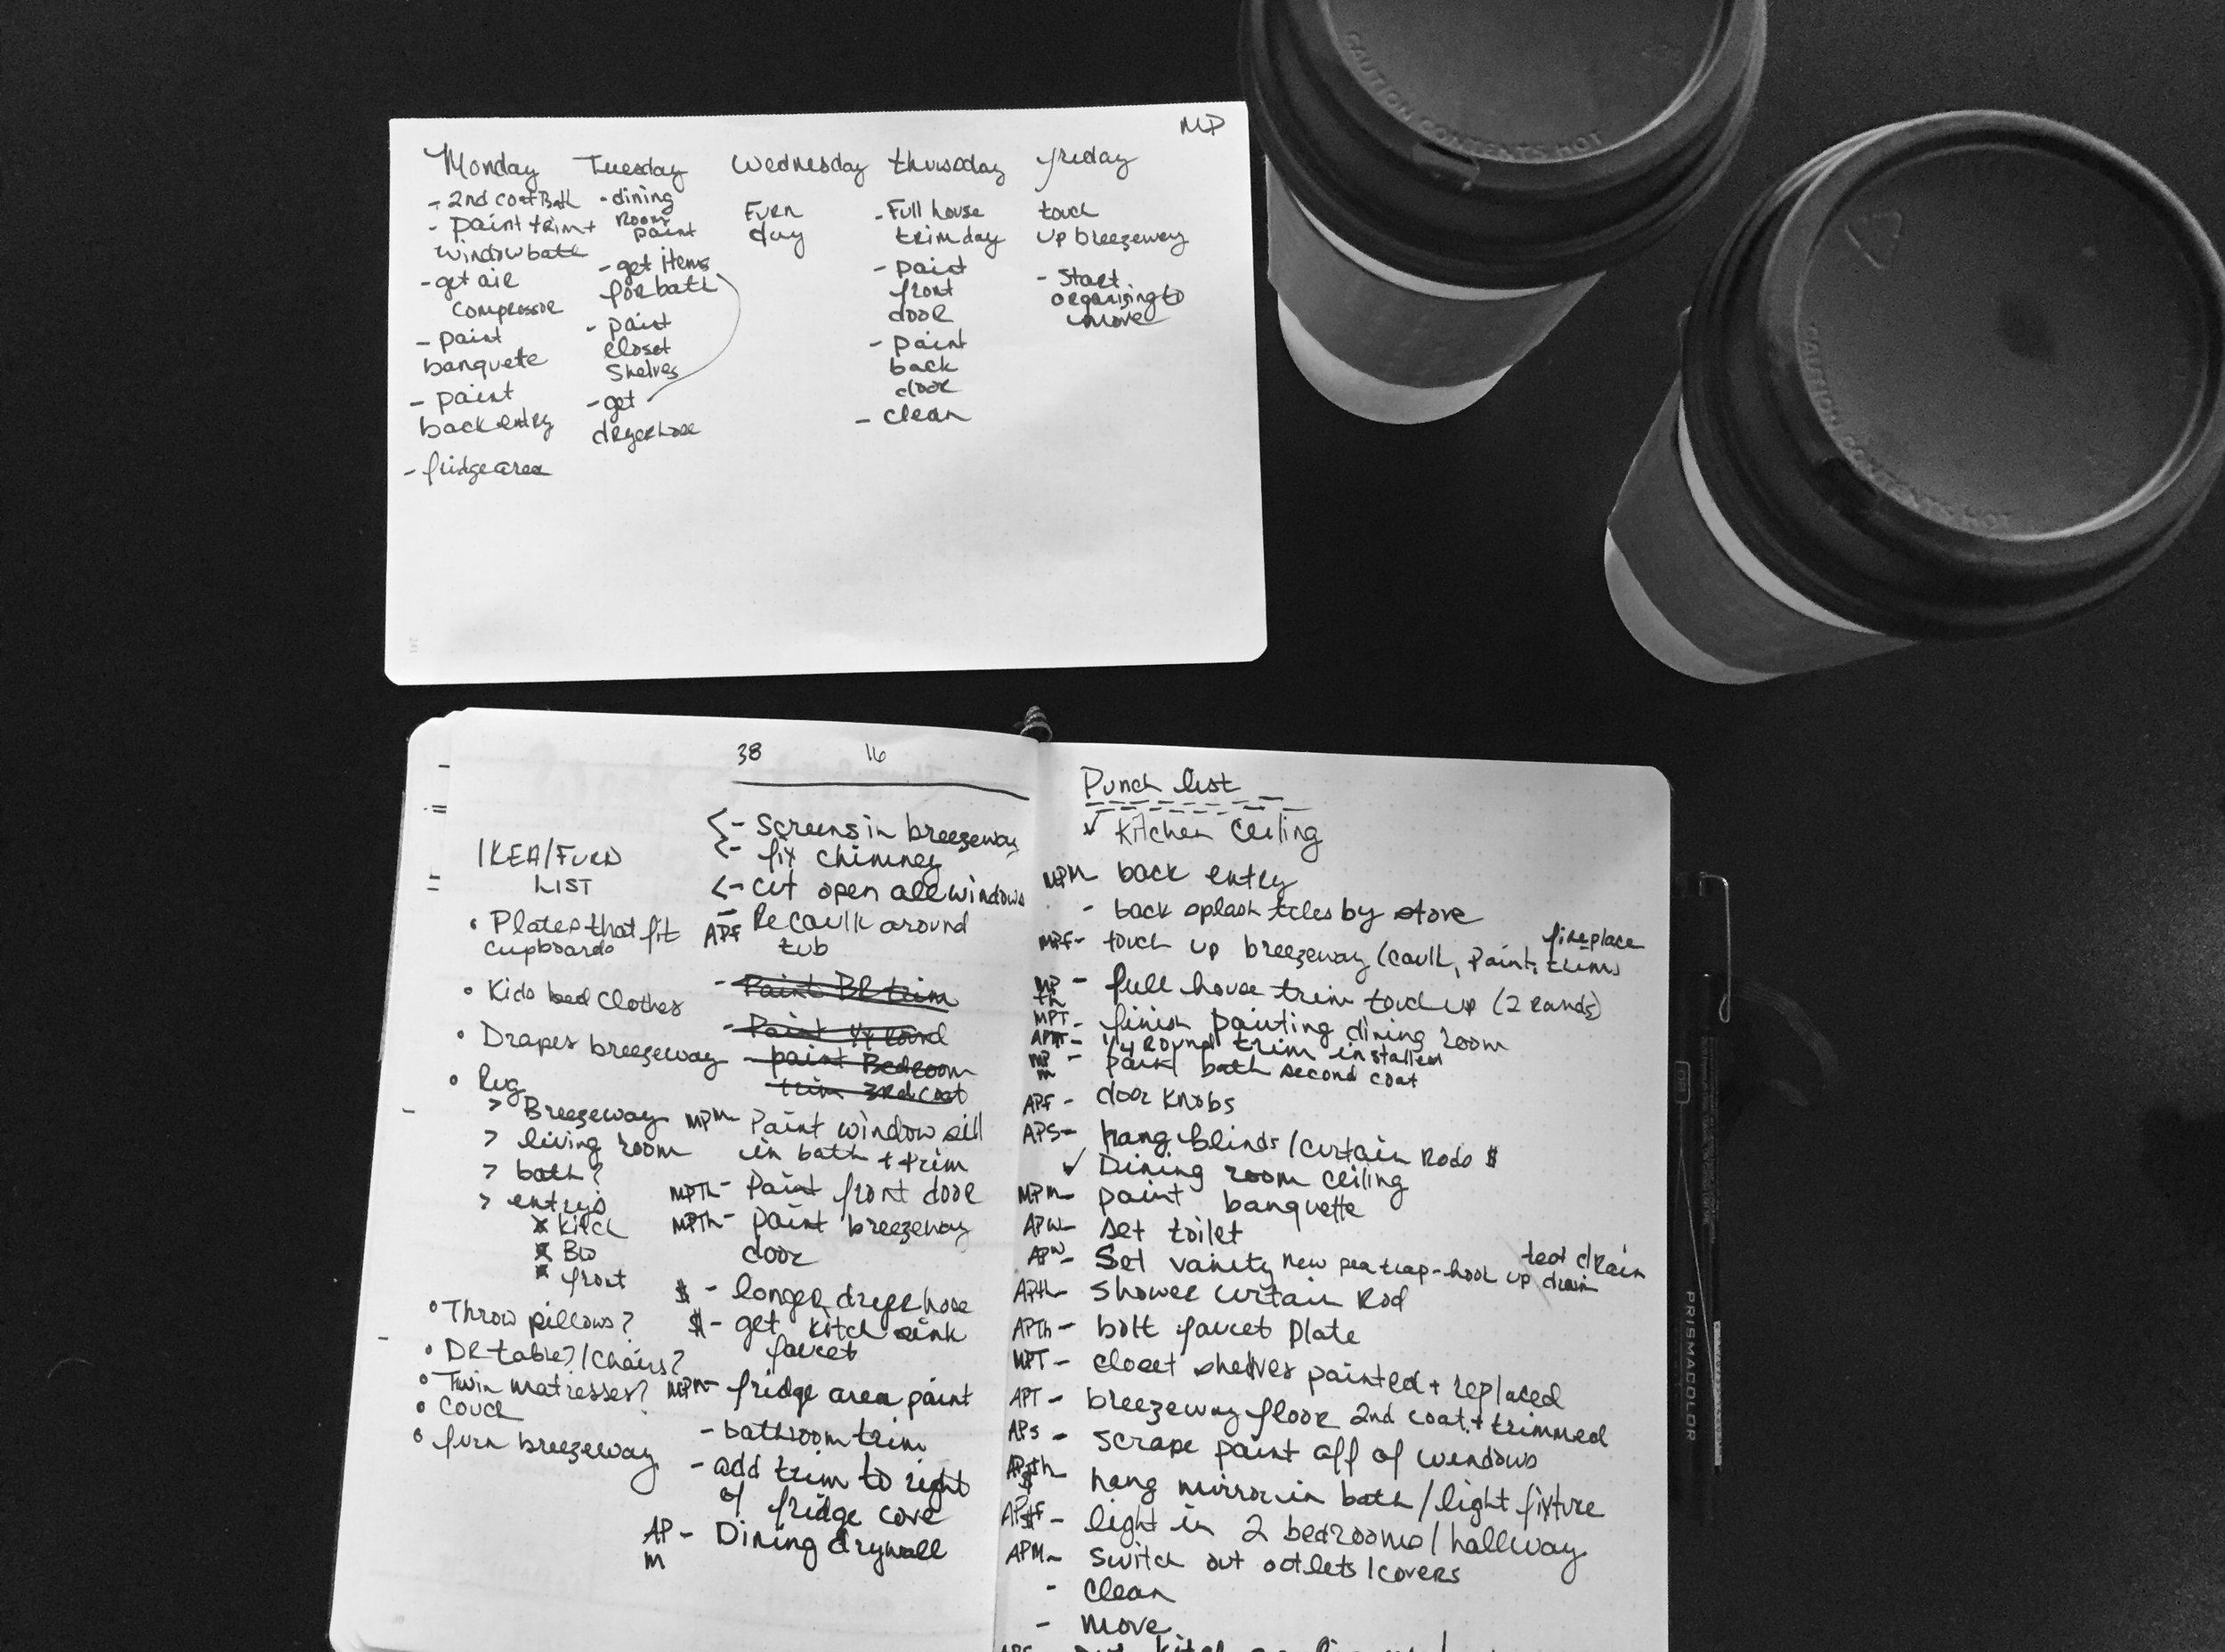 MP
Monday
- 2nd coat Bath
- paint trim +
window bath
- get air
compressor
- paint
banquete
- paint
back entry
- fridge area
Tuesday
- dining
Room
paint
- get items
for bath
- paint
closet
Shelves
- get
dryer hose
Wednesday
Furn
day
thursday
- Full house
trim day
- paint
front
door
- paint
back
door
- clean
friday
touch
up breezeway
- Start
organizing to
move
CAUTION CONTENTS HOT
CAUTION CONTENTS HOT
38 16
IKEA/FURN
LIST
• Plates that fit
cupboards
• Kids bed clothes
• Drapes breezeway
• Rug
> Breezeway
> living room
> bath?
> entrys
x kitch
x BD
x front
• Throw pillows?
• DR table?/Chairs?
• Twin matresses?
• Couch
• furn breezeway
<- Screens in breezeway
<- fix chimney
<- cut open all windows
APF - Re caulk around
tub
- Paint BR trim
- Paint 1/4 round
- paint Bedroom
trim 3rd coat
MPM - Paint window sill
in bath + trim
MPTh - Paint front door
MPTh - paint breezeway
door
$ - longer dryer hose
$ - get kitch sink
faucet
MPM - fridge area paint
- bathroom trim
- add trim to right
of fridge cove
AP - Dining drywall
M
Punch list
✓ Kitchen Ceiling
MPM - back entry
- back splash tiles by stove
fireplace
MPF - touch up breezeway (caulk, paint, trim)
MP - full house trim touch up (2 Rands)
th
MPT - finish painting dining room
APT - 1/4 Round trim installed
MP - paint bath second coat
M
APF - door knobs
APS - hang blinds/curtain Rods $
✓ Dining room ceiling
MPM - paint banquette
APW - set toilet
APW - Set vanity new pea trap - hook up drain
test drain
APth - Shower curtain Rod
APTh - bolt faucet plate
MPT - closet shelves painted + replaced
APT - breezeway floor 2nd coat + trimmed
APS - scrape paint off of windows
APth $ - hang mirror in bath/light fixture
AP$F - light in 2 bedrooms/hallway
APM - switch out outlets/covers
- Clean
- move
PRISMACOLOR